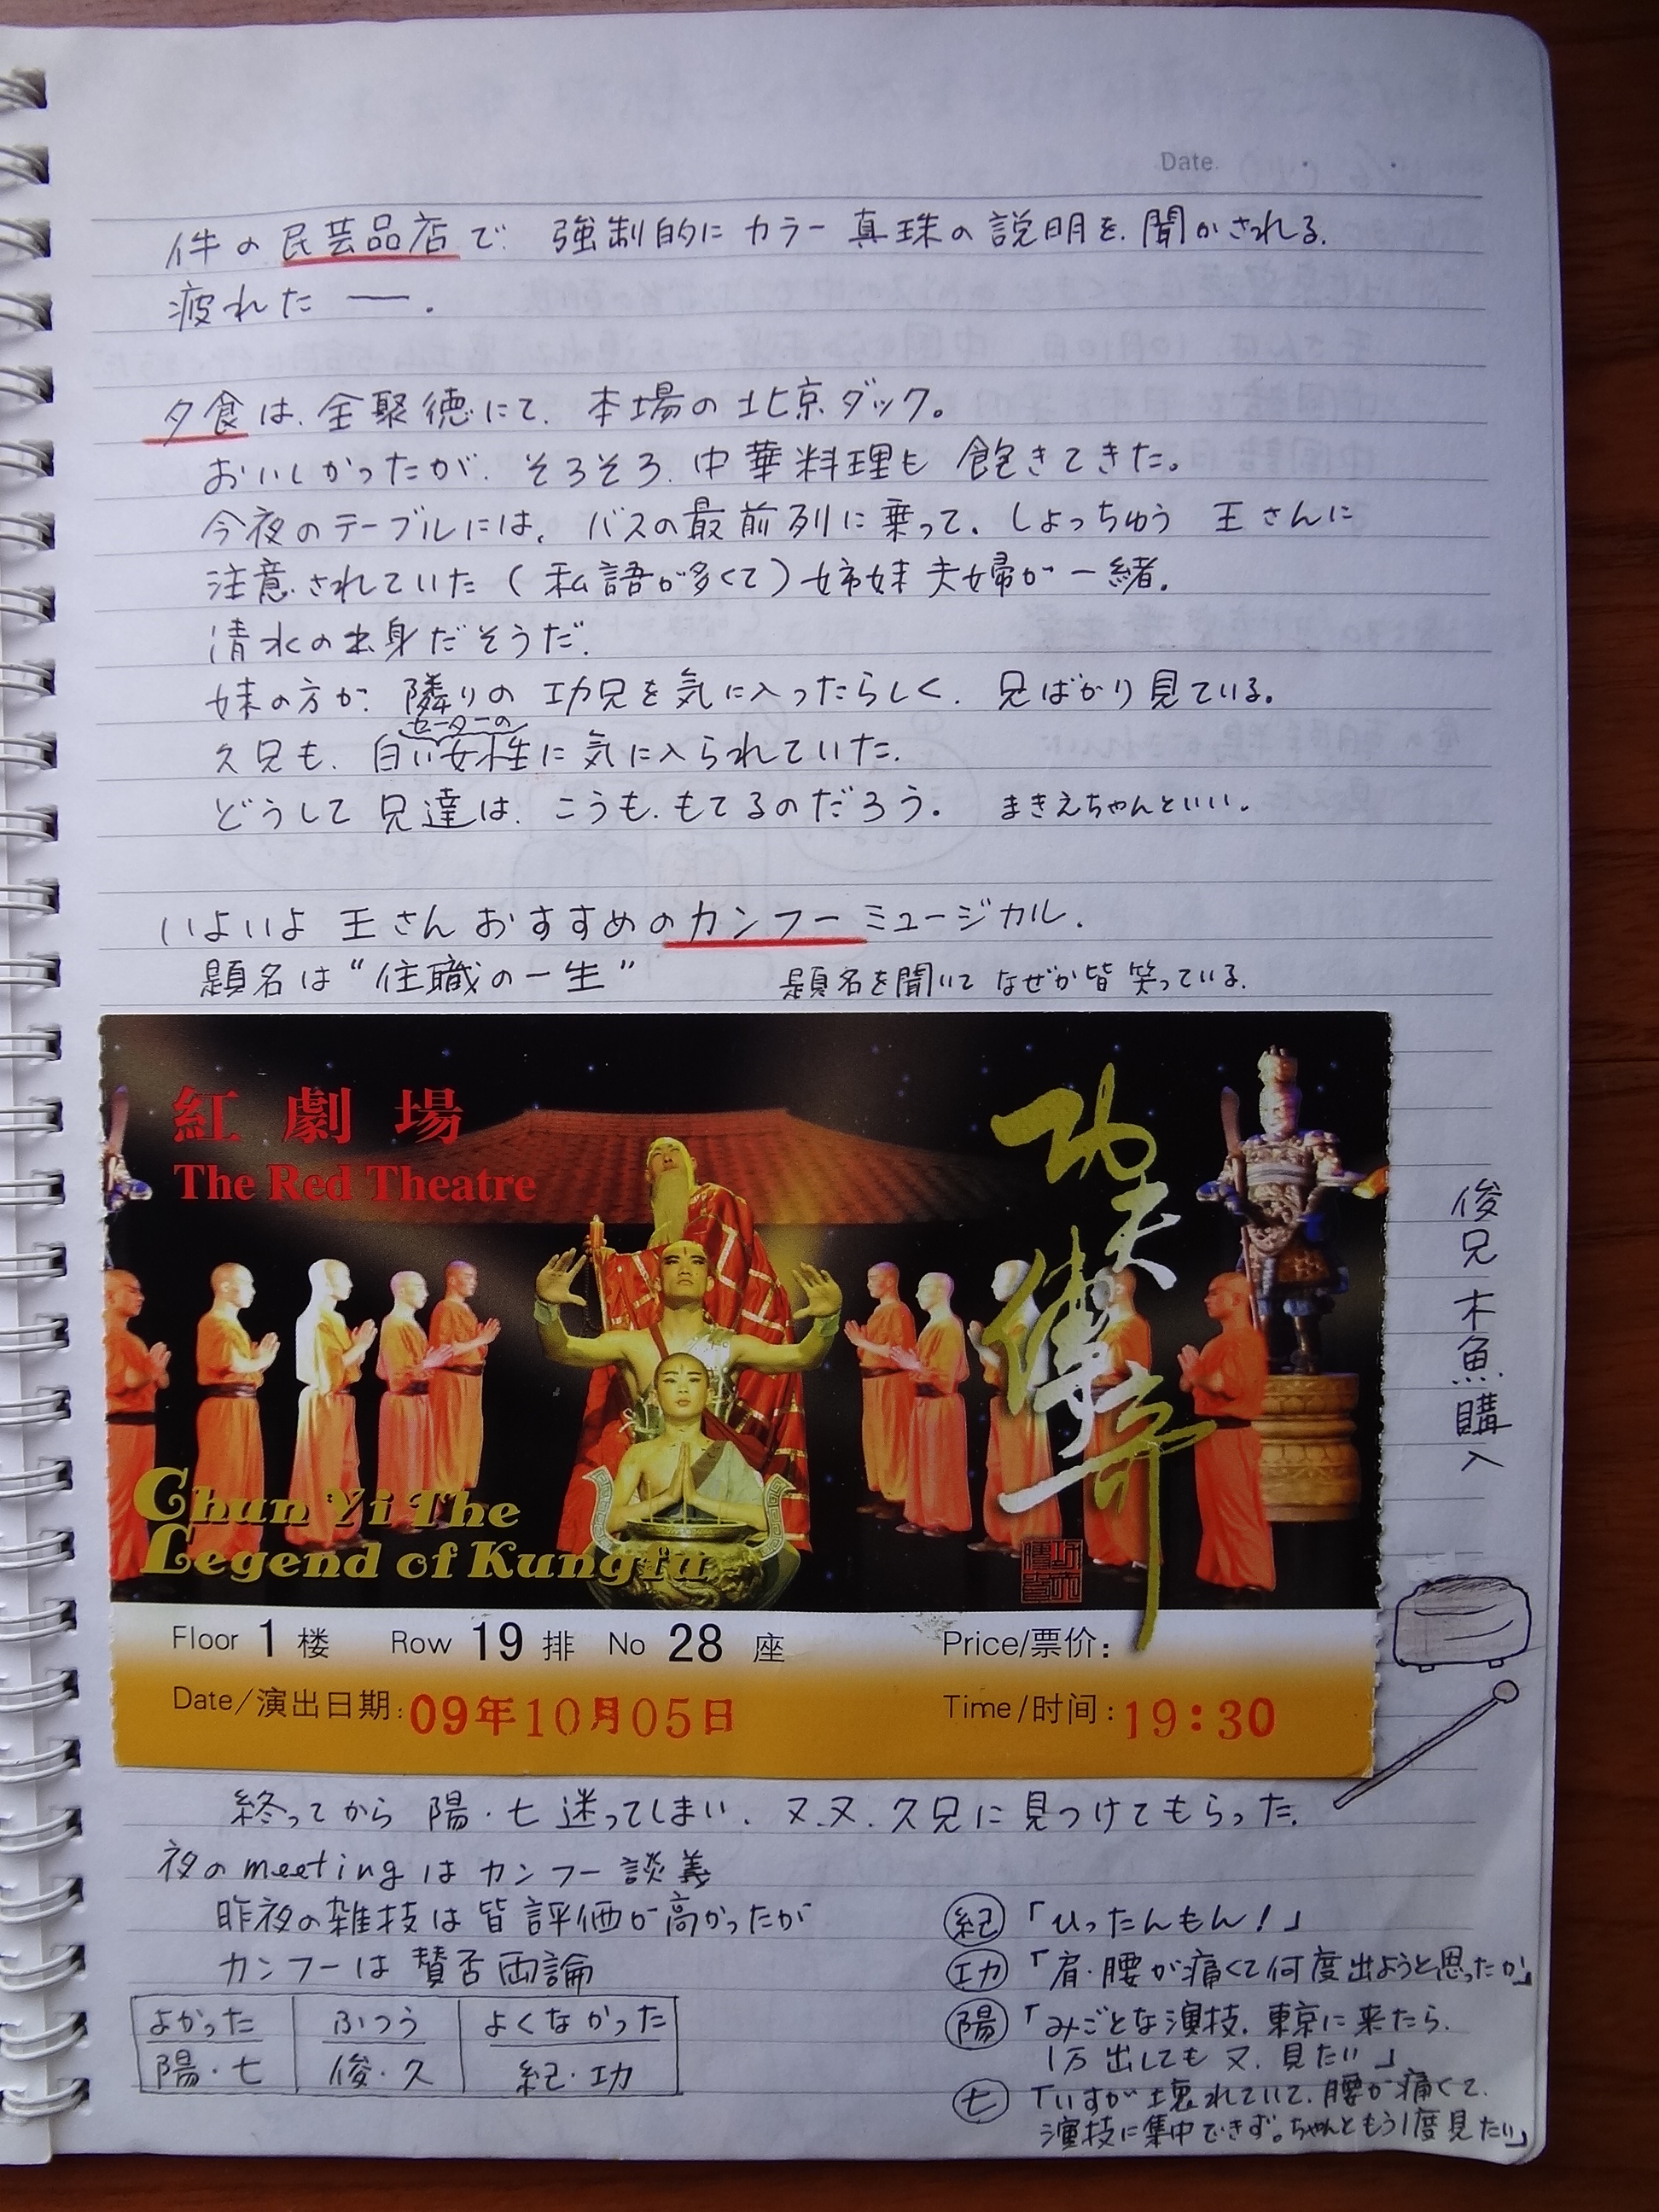 Date
件の民芸品店で、強制的にカラー真珠の説明を聞かされる。
疲れたー。
夕食は、全聚徳にて、本場の北京ダック。
おいしかったが、そろそろ、中華料理も飽きてきた。
今夜のテーブルには、バスの最前列に乗って、しょっちゅう 王さんに
注意されていた（私語が多くて）姉妹夫婦が一緒。
清水の出身だそうだ。
妹の方が、隣りの功兄を気に入ったらしく、兄ばかり見ている。
セーターの
久兄も、白い女性に気に入られていた。
どうして兄達は、こうも、もてるのだろう。 まきえちゃんといい。
いよいよ 王さんおすすめのカンフーミュージカル。
題名は“住職の一生” 題名を聞いてなぜか皆笑っている。
紅劇場
The Red Theatre
功夫傳奇
Chun Yi The
Legend of Kungfu
Floor 1 楼 Row 19 排 No 28 座 Price/票价:
Date/演出日期: 09年10月05日 Time/时间: 19:30
俊兄 木魚購入
終ってから 陽・七 迷ってしまい、又、又、久兄に見つけてもらった。
夜のmeetingはカンフー談義
昨夜の雑技は皆評価が高かったが
カンフーは賛否両論
よかった ふつう よくなかった
陽・七 俊・久 紀・功
紀「ひったんもん！」
功「肩・腰が痛くて何度出ようと思ったか」
陽「みごとな演技、東京に来たら、
1万出しても又、見たい」
七「いすが壊れていて、腰が痛くて、
演技に集中できず。ちゃんともう1度見たい」